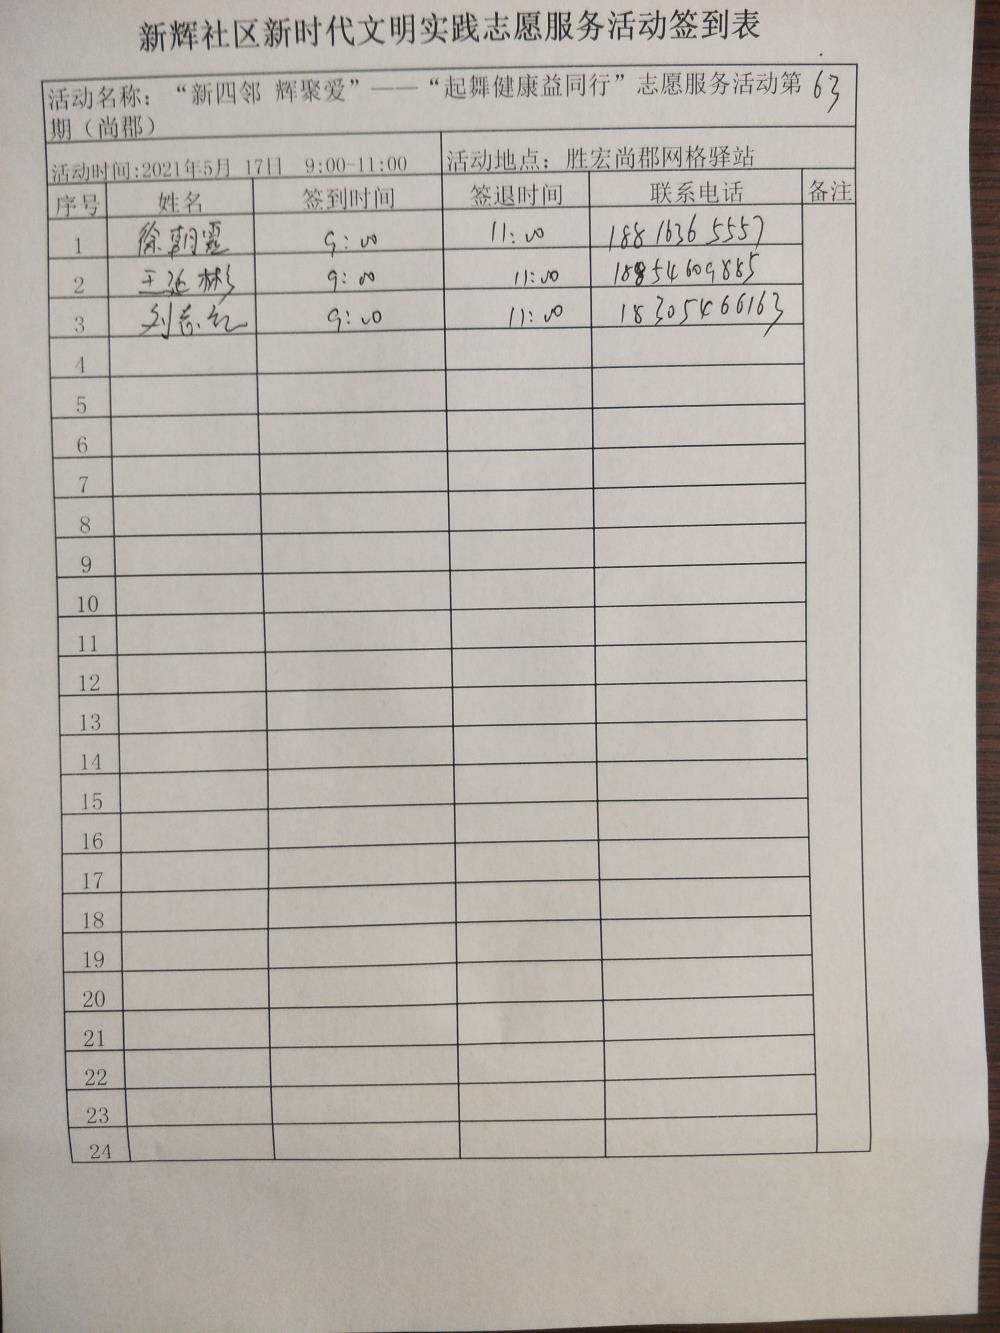 新辉社区新时代文明实践志愿服务活动签到表
活动名称：“新四邻 辉聚爱”——“起舞健康益同行”志愿服务活动第63
期（尚郡）
活动时间:2021年5月 17日 9:00-11:00 活动地点：胜宏尚郡网格驿站
序号 姓名 签到时间 签退时间 联系电话 备注
1 徐朝霞 9:00 11:00 18816365557
2 王延彬 9:00 11:00 18854609885
3 刘志红 9:00 11:00 18305466163
4
5
6
7
8
9
10
11
12
13
14
15
16
17
18
19
20
21
22
23
24